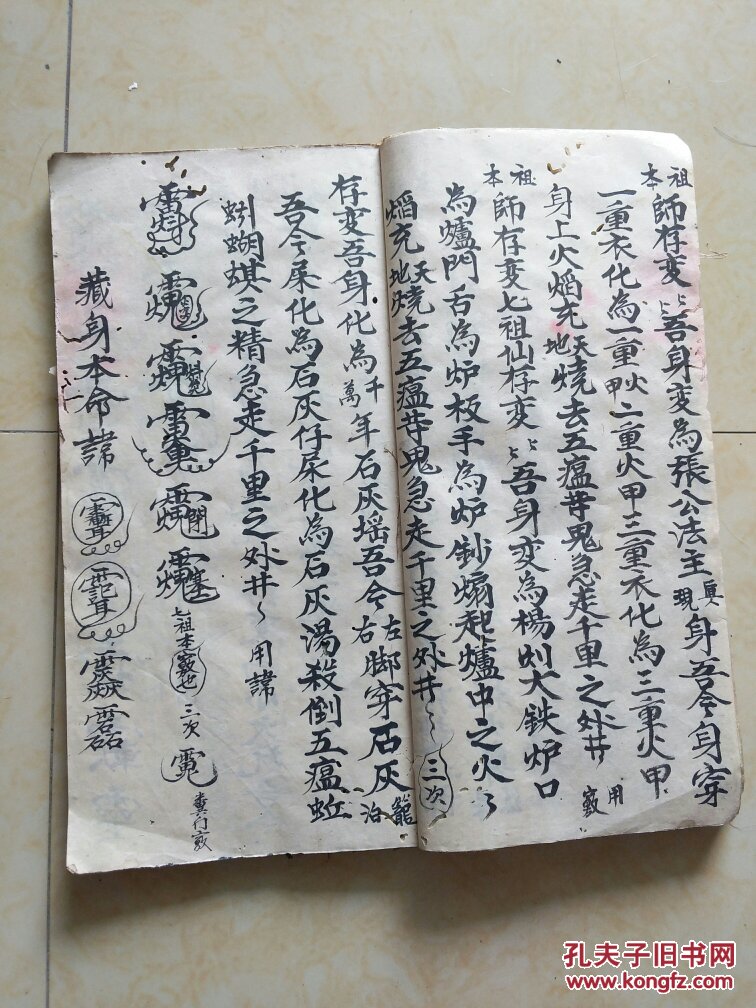 祖本師存变〻吾身变为張公法主真現身吾令身穿
一重衣化為一重火甲二重火甲三重衣化為三重火甲
身上火熖充天地燒去五瘟等鬼急走千里之外井 用
祖本師存变七祖仙存变〻吾身变為楊烈大鉄炉口
為爐門舌為炉板手為炉鈔煽起爐中之火〻
熖充天地燒去五瘟等鬼急走千里之外井〻三次
存变吾身化為千萬年石灰瑶吾令左右脚穿石灰籠
吾令屎化為石灰仔尿化為石灰湯殺倒五瘟蚯
蚓蝴蜞之精急走千里之外井〻 用諱
七祖本 三次
藏身本命諱
孔夫子旧书网
www.kongfz.com